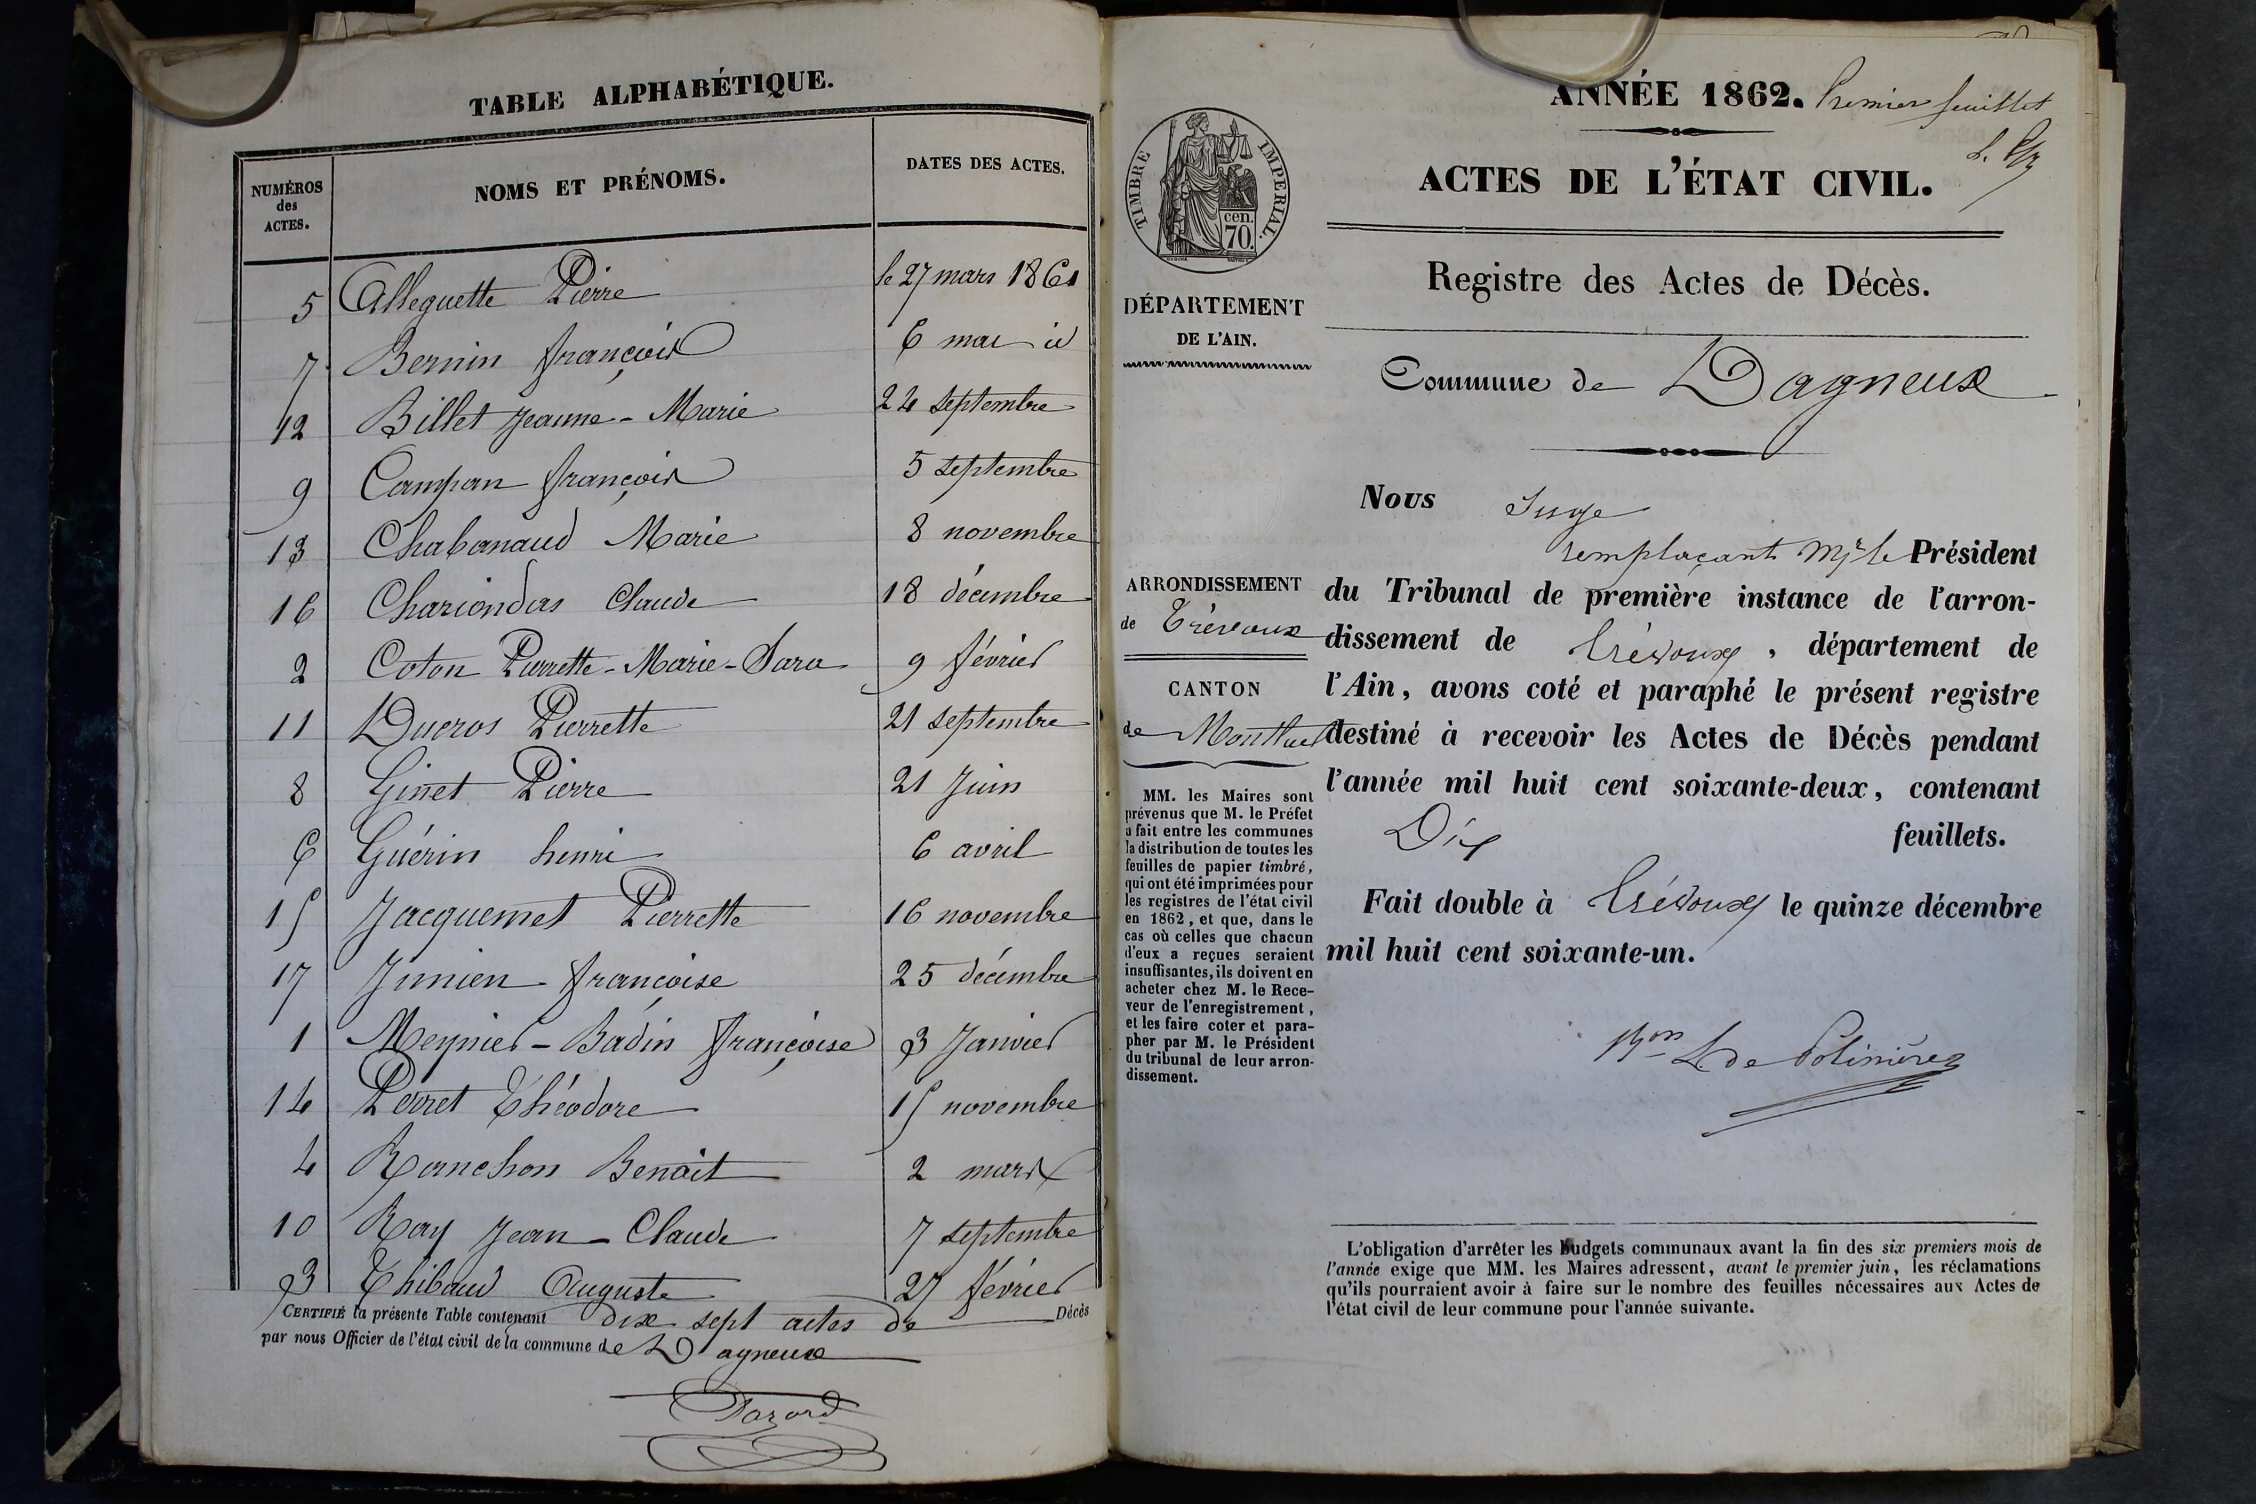 TABLE ALPHABÉTIQUE.
NUMÉROS des ACTES. NOMS ET PRÉNOMS. DATES DES ACTES.
5 Alleguette Pierre le 27 mars 1861
7 Bernin françois 6 mai id
12 Billet Jeanne-Marie 24 septembre
9 Campan françois 5 septembre
13 Chabanaud Marie 8 novembre
16 Chariondas Claude 18 décembre
2 Coton Pierrette-Marie-Sara 9 février
11 Ducros Pierrette 21 septembre
8 Ginet Pierre 21 Juin
6 Guérin henri 6 avril
15 Jacquemet Pierrette 16 novembre
17 Junien françoise 25 décembre
1 Meynier-Badin françoise 3 Janvier
14 Perret Théodore 15 novembre
4 Ranchon Benoit 2 mars
10 Ray Jean-Claude 7 septembre
3 Thibaud Auguste 27 février
CERTIFIÉ la présente Table contenant dix sept actes de Décès
par nous Officier de l'état civil de la commune de Dagneux
TIMBRE IMPÉRIAL.
cen.
70.
DÉPARTEMENT
DE L'AIN.
ARRONDISSEMENT
de Trévoux
CANTON
de Montluel
MM. les Maires sont
prévenus que M. le Préfet
a fait entre les communes
la distribution de toutes les
feuilles de papier timbré,
qui ont été imprimées pour
les registres de l'état civil
en 1862, et que, dans le
cas où celles que chacun
d'eux a reçues seraient
insuffisantes, ils doivent en
acheter chez M. le Rece-
veur de l'enregistrement,
et les faire coter et para-
pher par M. le Président
du tribunal de leur arron-
dissement.
ANNÉE 1862. Premier feuillet
ACTES DE L'ÉTAT CIVIL.
Registre des Actes de Décès.
Commune de Dagneux
Nous Juge
remplaçant Mr le Président
du Tribunal de première instance de l'arron-
dissement de Trévoux, département de
l'Ain, avons coté et paraphé le présent registre
destiné à recevoir les Actes de Décès pendant
l'année mil huit cent soixante-deux, contenant
Dix feuillets.
Fait double à Trévoux le quinze décembre
mil huit cent soixante-un.
Bon L. de Polinière
L'obligation d'arrêter les budgets communaux avant la fin des six premiers mois de
l'année exige que MM. les Maires adressent, avant le premier juin, les réclamations
qu'ils pourraient avoir à faire sur le nombre des feuilles nécessaires aux Actes de
l'état civil de leur commune pour l'année suivante.